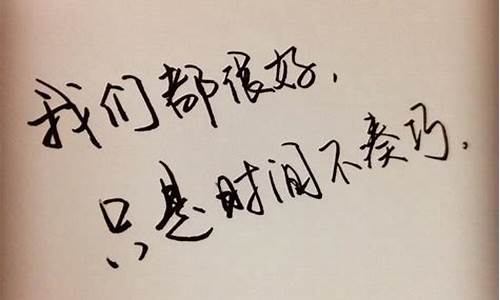 我们都很好，
只是时间不凑巧，